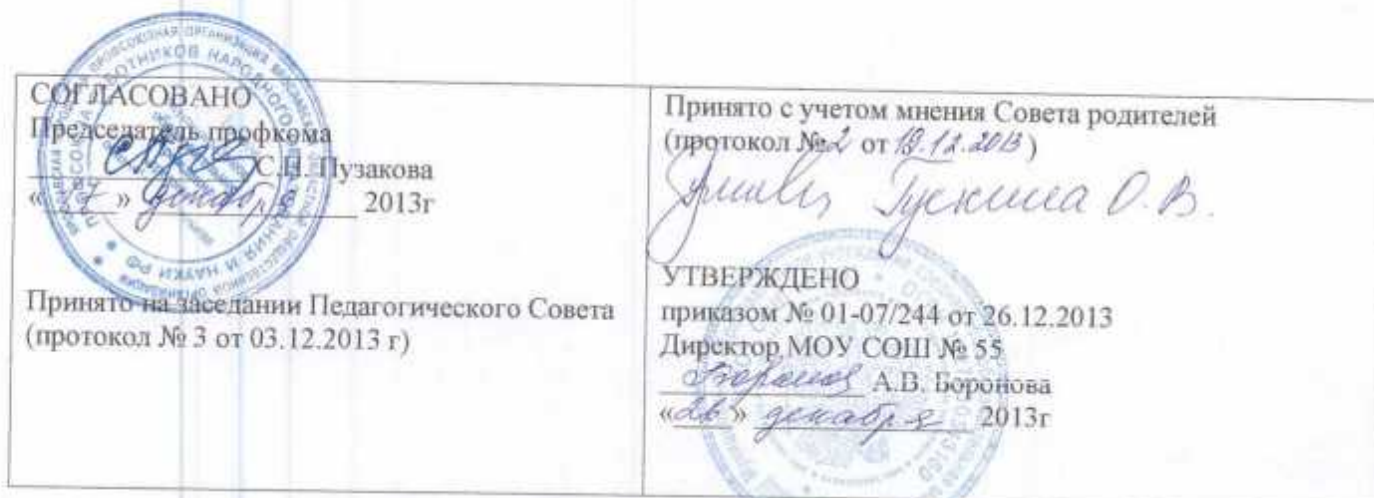 СОГЛАСОВАНО
Председатель профкома
С.П. Пузакова
« 17 » декабря 2013г
Принято на заседании Педагогического Совета
(протокол № 3 от 03.12.2013 г)
Принято с учетом мнения Совета родителей
(протокол №2 от 19.12.2013)
О.В.
УТВЕРЖДЕНО
приказом № 01-07/244 от 26.12.2013
Директор МОУ СОШ № 55
А.В. Боронова
«26» декабря 2013г